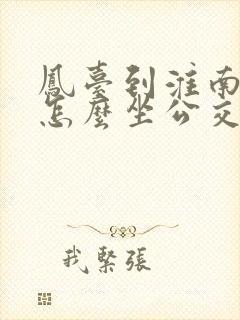 鳳臺到淮南
怎麼坐公交
我緊張